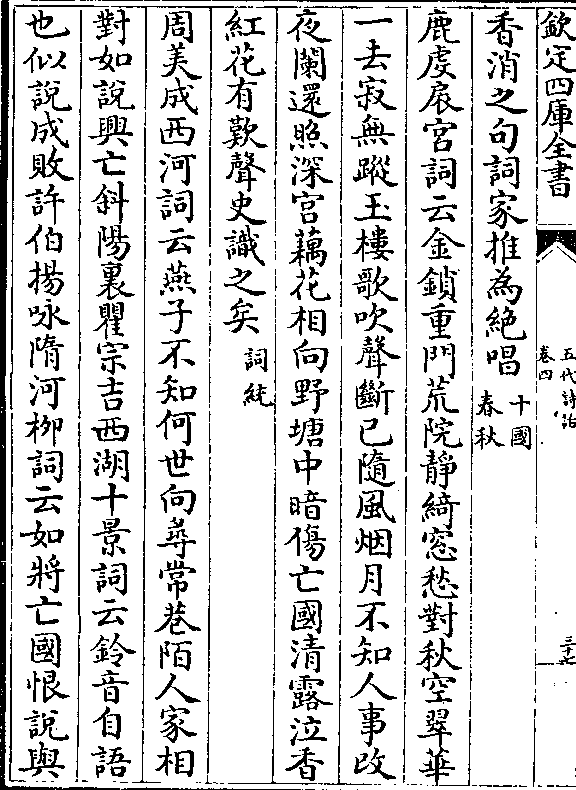 欽定四庫全書
五代詩話
卷四
三十七
香消之句詞家推為絶唱十國春秋
鹿虔扆宫詞云金鎖重門荒院靜綺窓愁對秋空翠華
一去寂無蹤玉樓歌吹聲斷已隨風烟月不知人事改
夜闌還照深宫藕花相向野塘中暗傷亡國清露泣香
紅花有歎聲史識之矣詞統
周美成西河詞云燕子不知何世向尋常巷陌人家相
對如說興亡斜陽裏瞿宗吉西湖十景詞云鈴音自語
也似說成敗許伯揚咏隋河柳詞云如將亡國恨說與